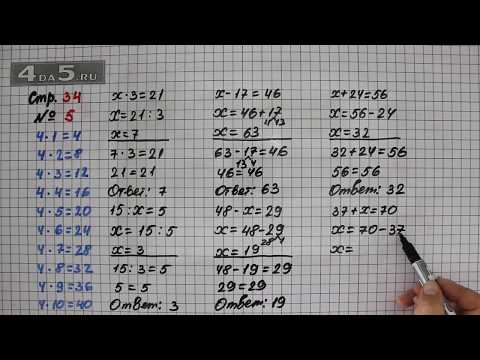 4DA5.RU
Стр. 34
№ 5
4·1=4
4·2=8
4·3=12
4·4=16
4·5=20
4·6=24
4·7=28
4·8=32
4·9=36
4·10=40
x·3=21
x=21:3
x=7
7·3=21
21=21
Ответ: 7
15:x=5
x=15:5
x=3
15:3=5
5=5
Ответ: 3
x-17=46
x=46+17
4 13
x=63
63-17=46
13 4
46=46
Ответ: 63
48-x=29
x=48-29
x=19
48-19=29
29=29
Ответ: 19
x+24=56
x=56-24
x=32
32+24=56
56=56
Ответ: 32
37+x=70
x=70-37
x=